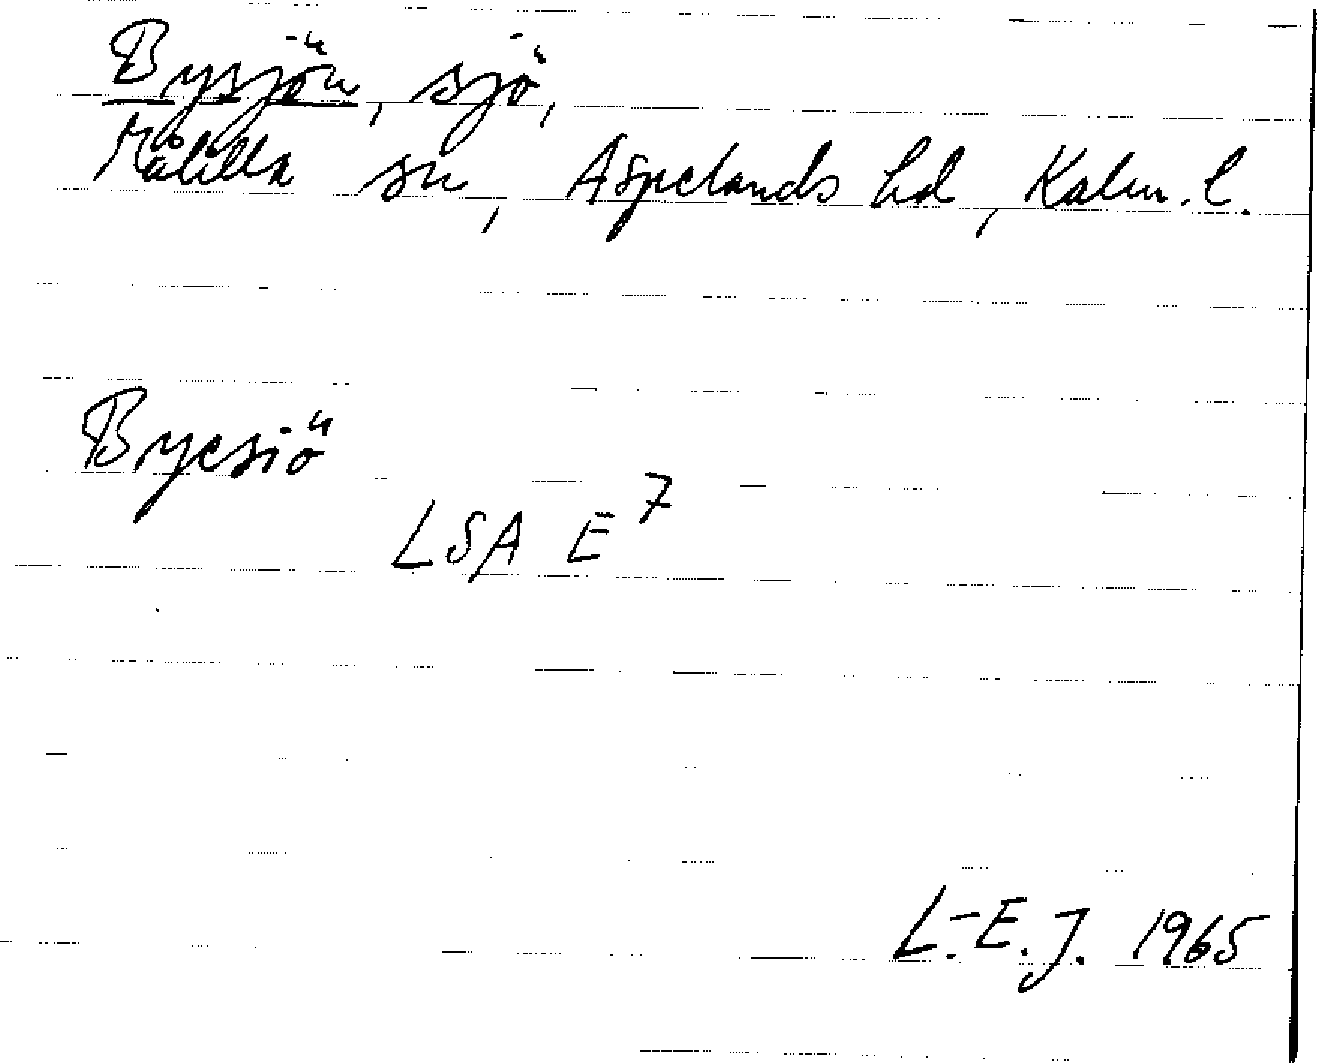 Bysjön, sjö,
Målilla sn, Aspelands hd, Kalm. l.
Byesiö
LSA E 7
L.-E. J. 1965